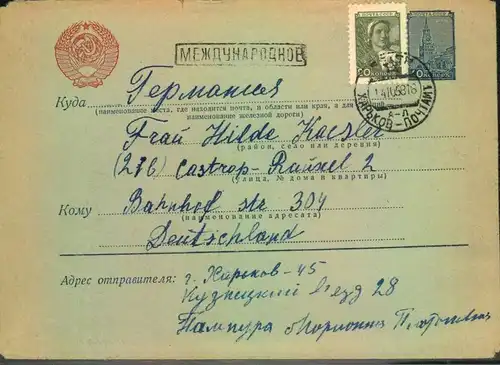 МЕЖДУНАРОДНОЕ
ПОЧТА СССР
ПОЧТА СССР
ХАРЬКОВ-ПОЧТАМТ
Куда Германия
(наименование места, где находится почта, и области или края, а для
наименование железной дороги)
Frau Hilde
(район, село или деревня)
(216) Castrop-Rauxel 2
(улица, № дома и квартиры)
Кому Bahnhof str 304
(наименование адресата)
Deutschland
Адрес отправителя: г. Харьков-45
Кузнецкий 28